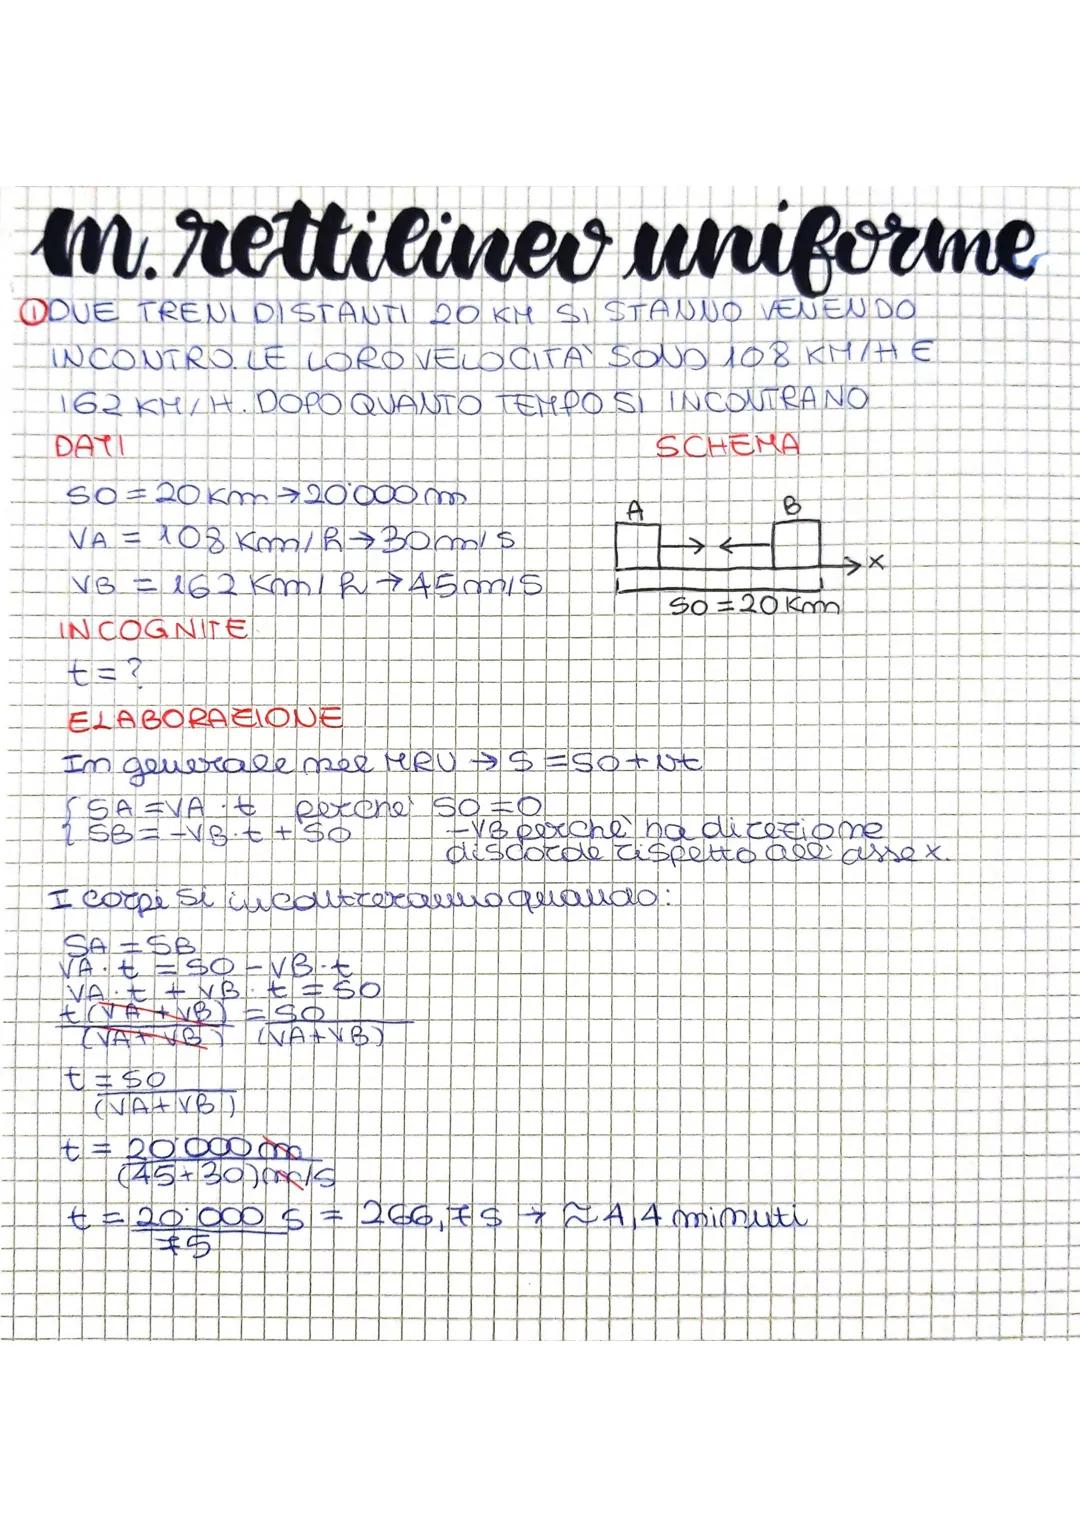 m. rettilineo uniforme
① DUE TRENI DISTANTI 20 KM SI STANNO VENENDO
INCONTRO. LE LORO VELOCITA' SONO 108 KM/H E
162 KM/H. DOPO QUANTO TEMPO SI INCONTRANO
DATI
SCHEMA
S0 = 20 Km → 20'000 m
VA = 108 Km/h → 30 m/s
VB = 162 Km/h → 45 m/s
A B
x
S0 = 20 Km
INCOGNITE
t = ?
ELABORAZIONE
In generale nel MRU → S = S0 + vt
{ SA = VA · t perchè S0 = 0
SB = -VB · t + S0 -VB perchè ha direzione
discorde rispetto all'asse x.
I corpi si incontreranno quando:
SA = SB
VA · t = S0 - VB · t
VA · t + VB · t = S0
t (VA + VB) = S0
(VA + VB) (VA + VB)
t = S0
(VA + VB)
t = 20'000 m
(45 + 30) m/s
t = 20'000 s = 266,7 s → ≈ 4,4 minuti
75